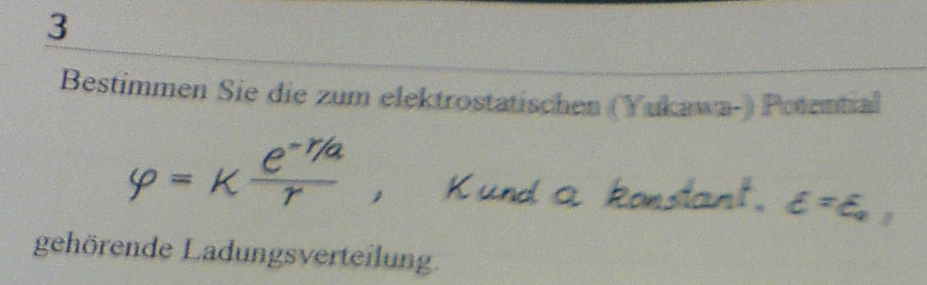 3
Bestimmen Sie die zum elektrostatischen (Yukawa-) Potential
φ = K e^{-r/a} / r , K und a konstant. ε = ε₀,
gehörende Ladungsverteilung.